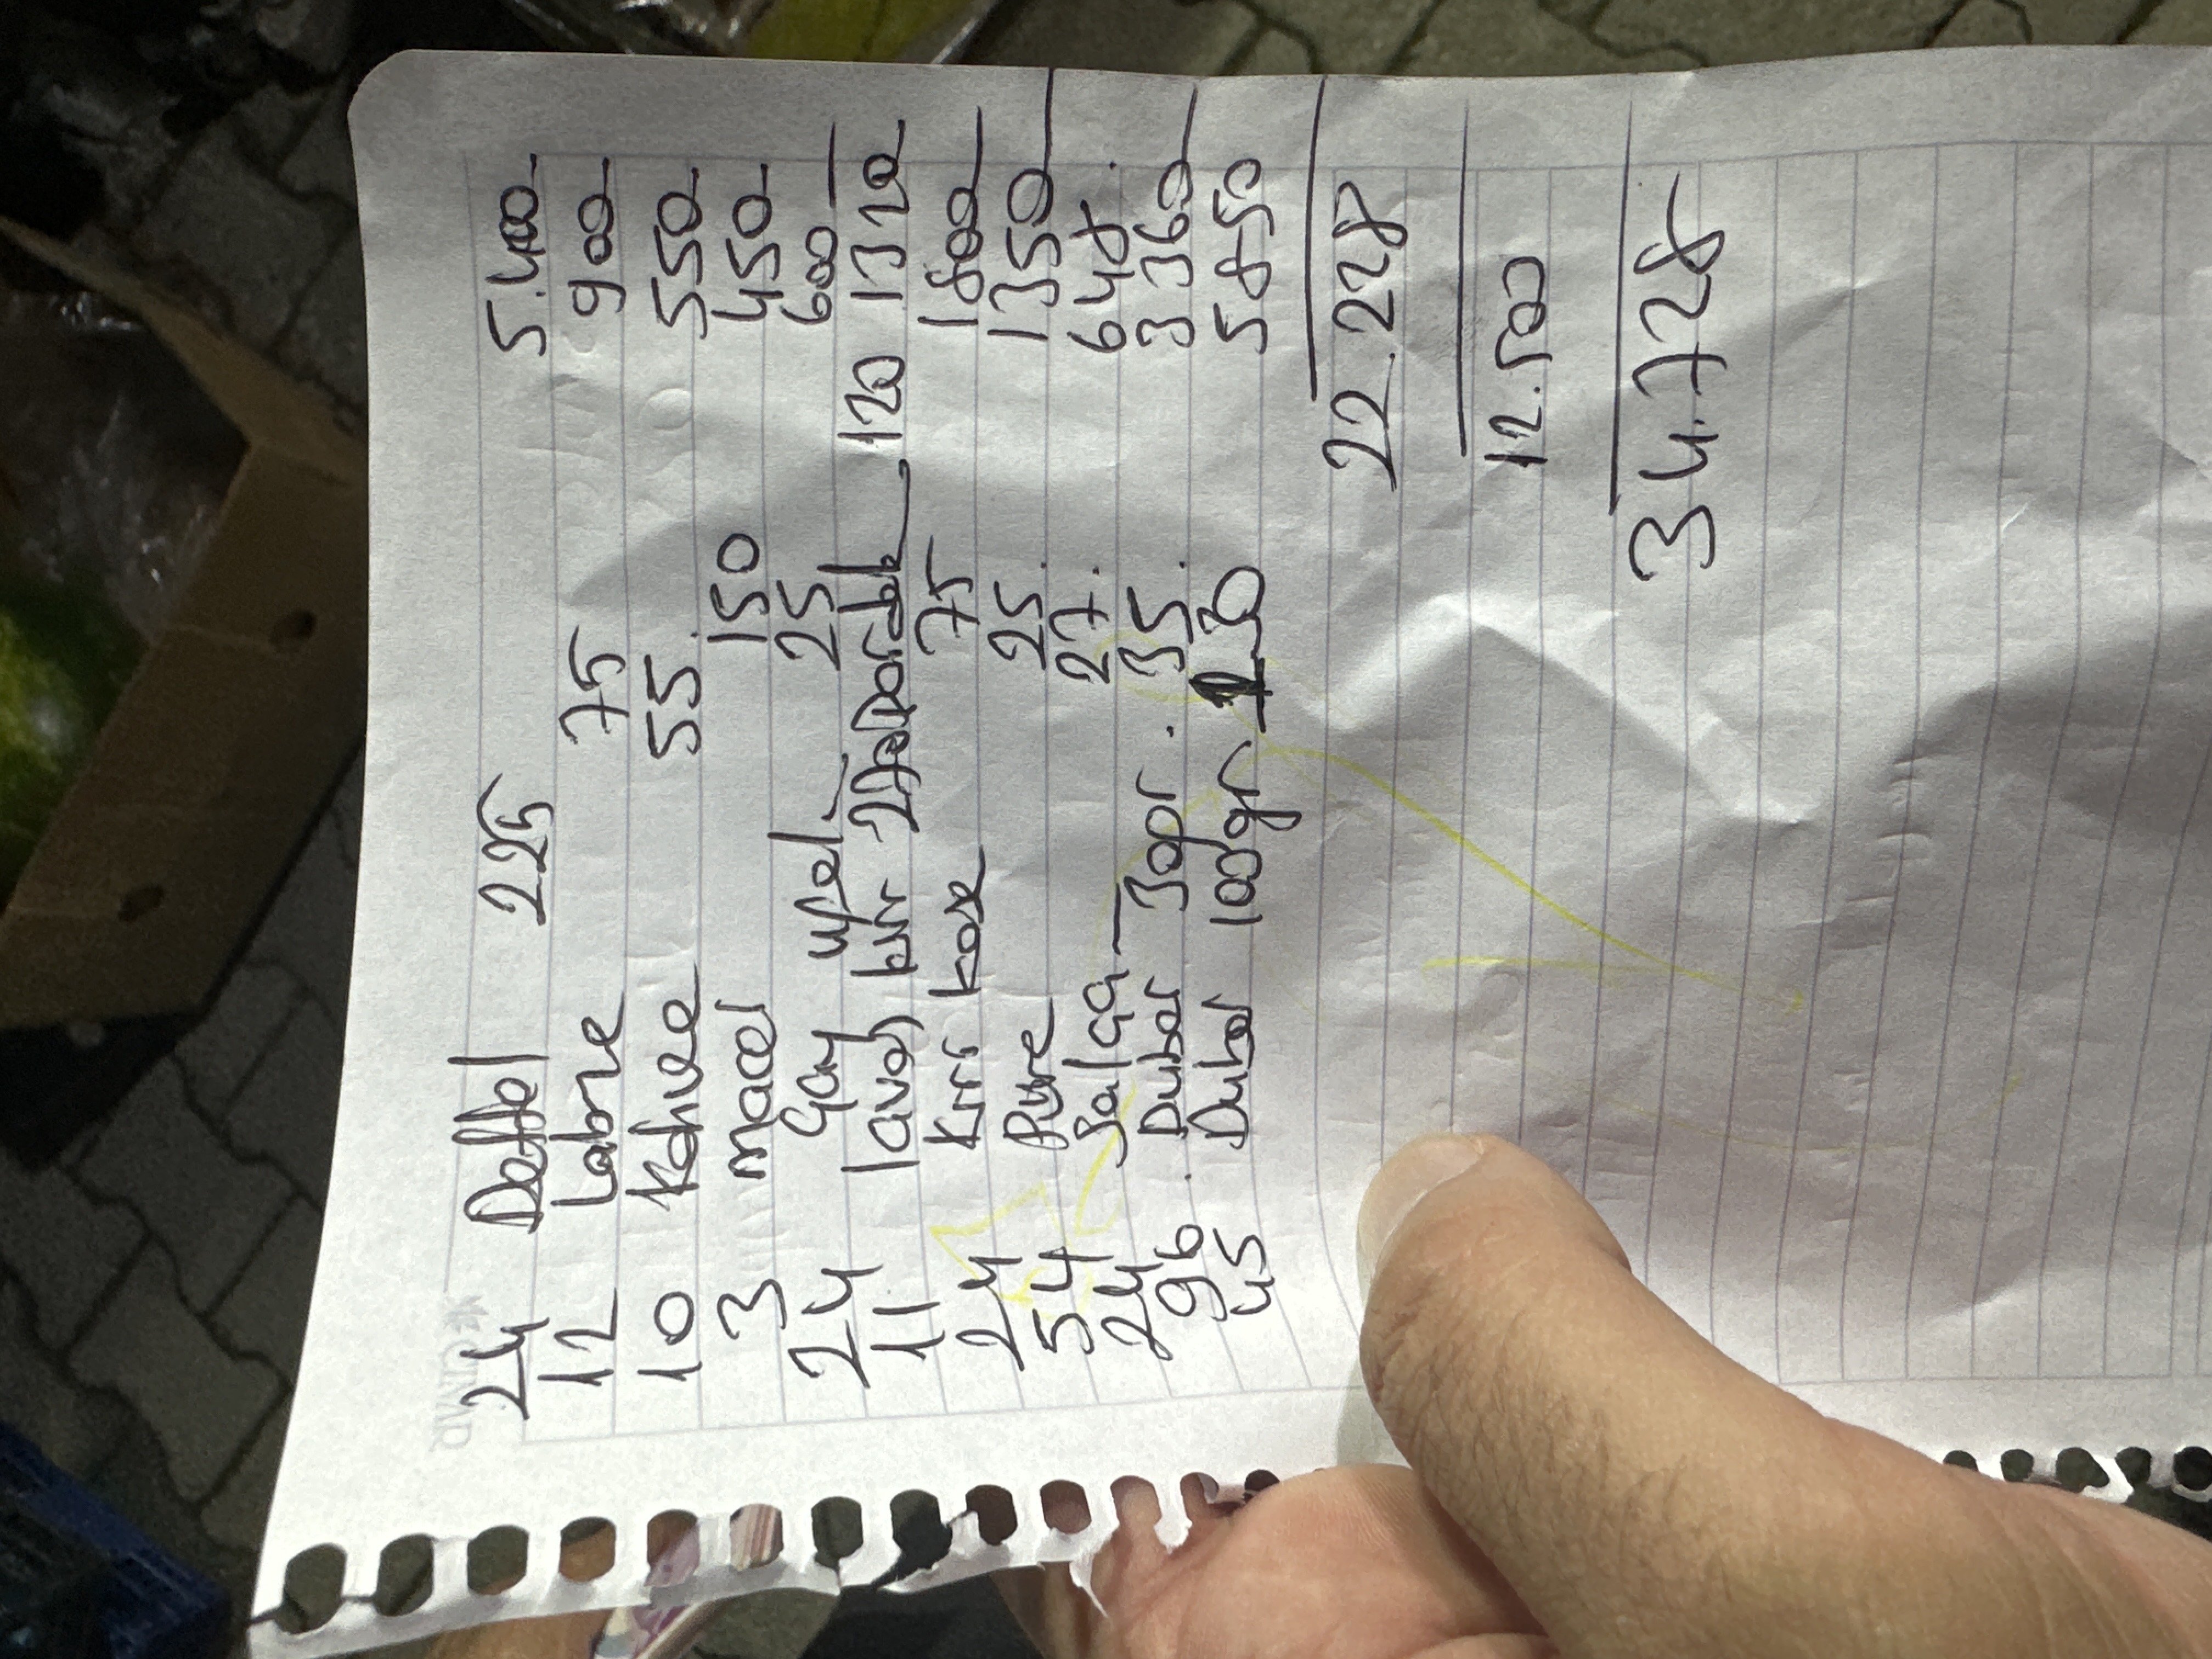 24 Daffel 225 5.400
12 Labne 75 900
10 Kahve 55 550
3 macel 150 450
24 Gay 25 600
11 lavaş kırr 120 1320
24 Kırr kase 75 1800
54 Pure 25. 1350
24 Salça 27. 648.
96 Dubai 35. 3360
45 Dubai 100gr 130 5850
22.228
12.500
34.728